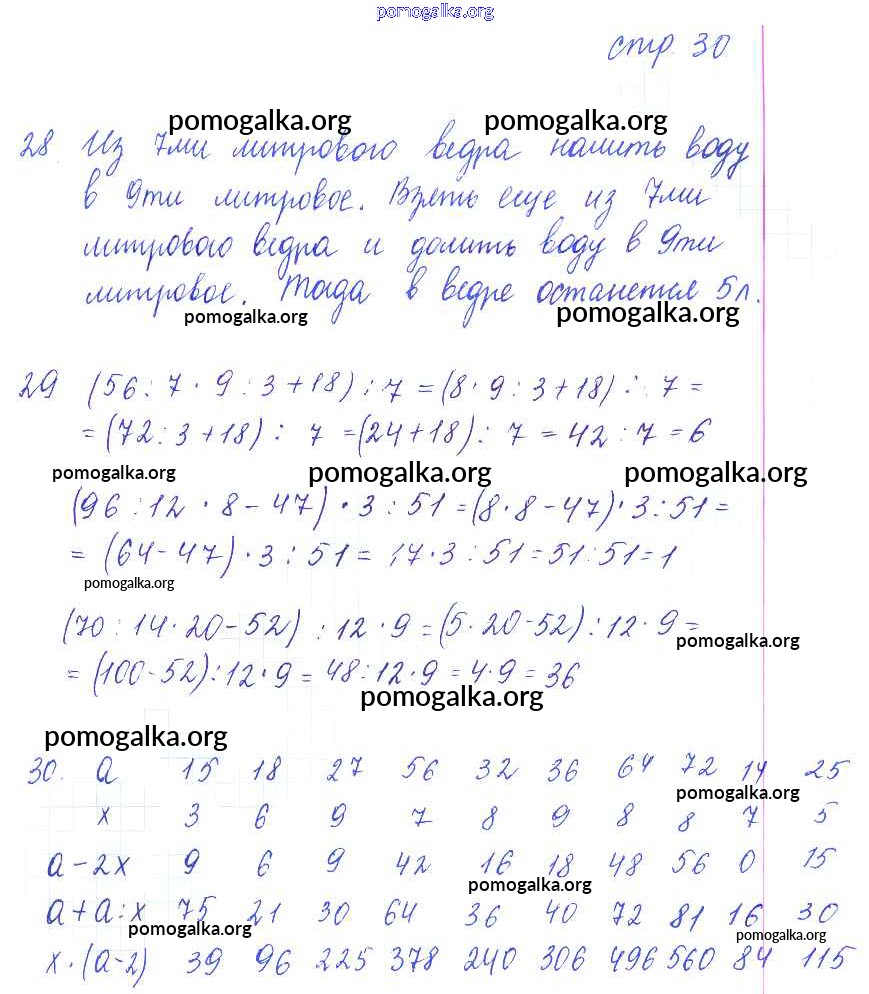 pomogalka.org
стр. 30
pomogalka.org pomogalka.org
28 Из 7ми литрового ведра налить воду
в 9ти литровое. Взять еще из 7ми
литрового ведра и долить воду в 9ти
литровое. Тогда в ведре останется 5 л.
pomogalka.org pomogalka.org
29 (56 : 7 · 9 : 3 + 18) : 7 = (8 · 9 : 3 + 18) : 7 =
= (72 : 3 + 18) : 7 = (24 + 18) : 7 = 42 : 7 = 6
pomogalka.org pomogalka.org pomogalka.org
(96 : 12 · 8 - 47) · 3 : 51 = (8 · 8 - 47) · 3 : 51 =
= (64 - 47) · 3 : 51 = 17 · 3 : 51 = 51 : 51 = 1
pomogalka.org
(70 : 14 · 20 - 52) : 12 · 9 = (5 · 20 - 52) : 12 · 9 =
pomogalka.org
= (100 - 52) : 12 · 9 = 48 : 12 · 9 = 4 · 9 = 36
pomogalka.org
pomogalka.org
30. a 15 18 27 56 32 36 64 72 14 25
pomogalka.org
x 3 6 9 7 8 9 8 8 7 5
a - 2x 9 6 9 42 16 18 48 56 0 15
pomogalka.org
a + a : x 75 21 30 64 36 40 72 81 16 30
pomogalka.org pomogalka.org
x · (a - 2) 39 96 225 378 240 306 496 560 84 115